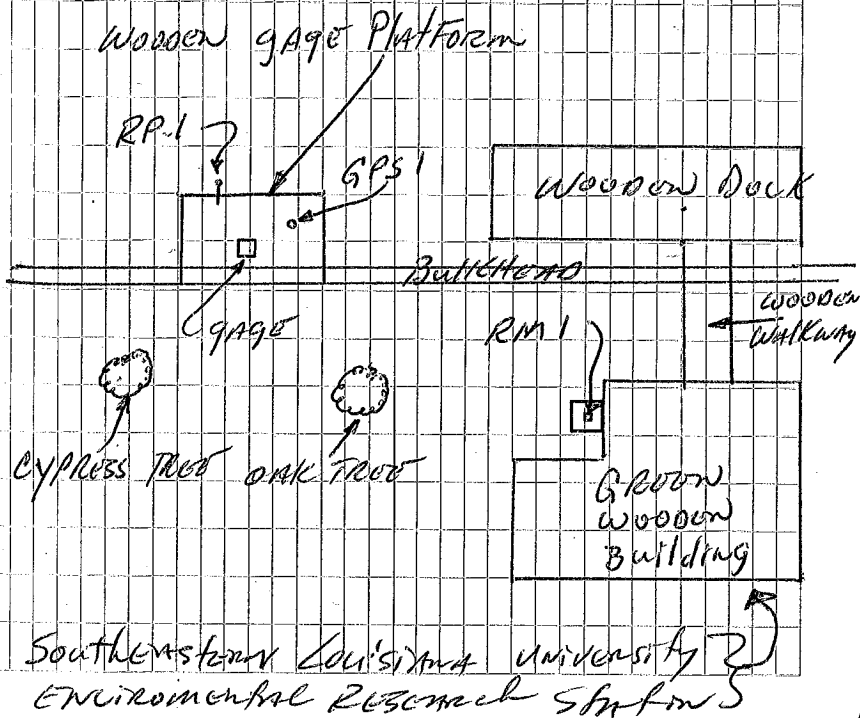 WOODEN gAgE PlAtFORM
RP-1
GPS 1
WOODEN DOCK
BulKHEAD
WOODEN
WAlKWAy
gAgE
RM 1
CYPRESS TREE
OAK TREE
GREEN
WOODEN
Building
SouthEASTERN LouisiANA UNIVERSITY
ENVIROMENTAL RESEARCH StAtION